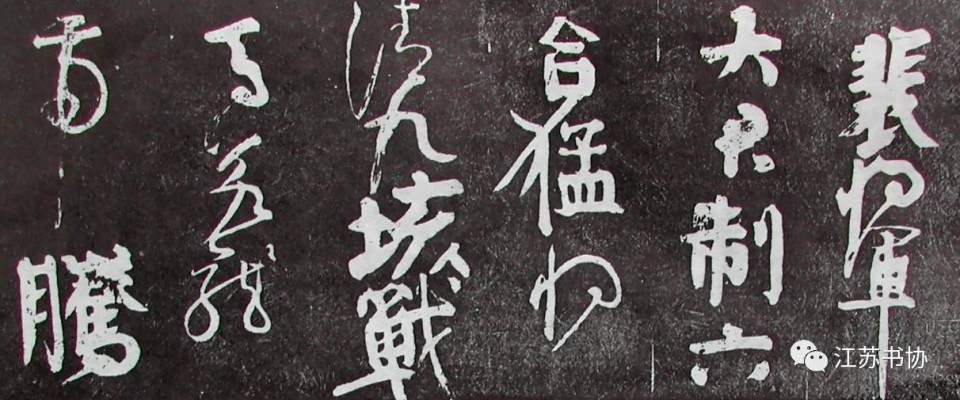 裴将軍
大君制六
合猛将
清九垓戰
馬若龍
虎騰
江苏书协